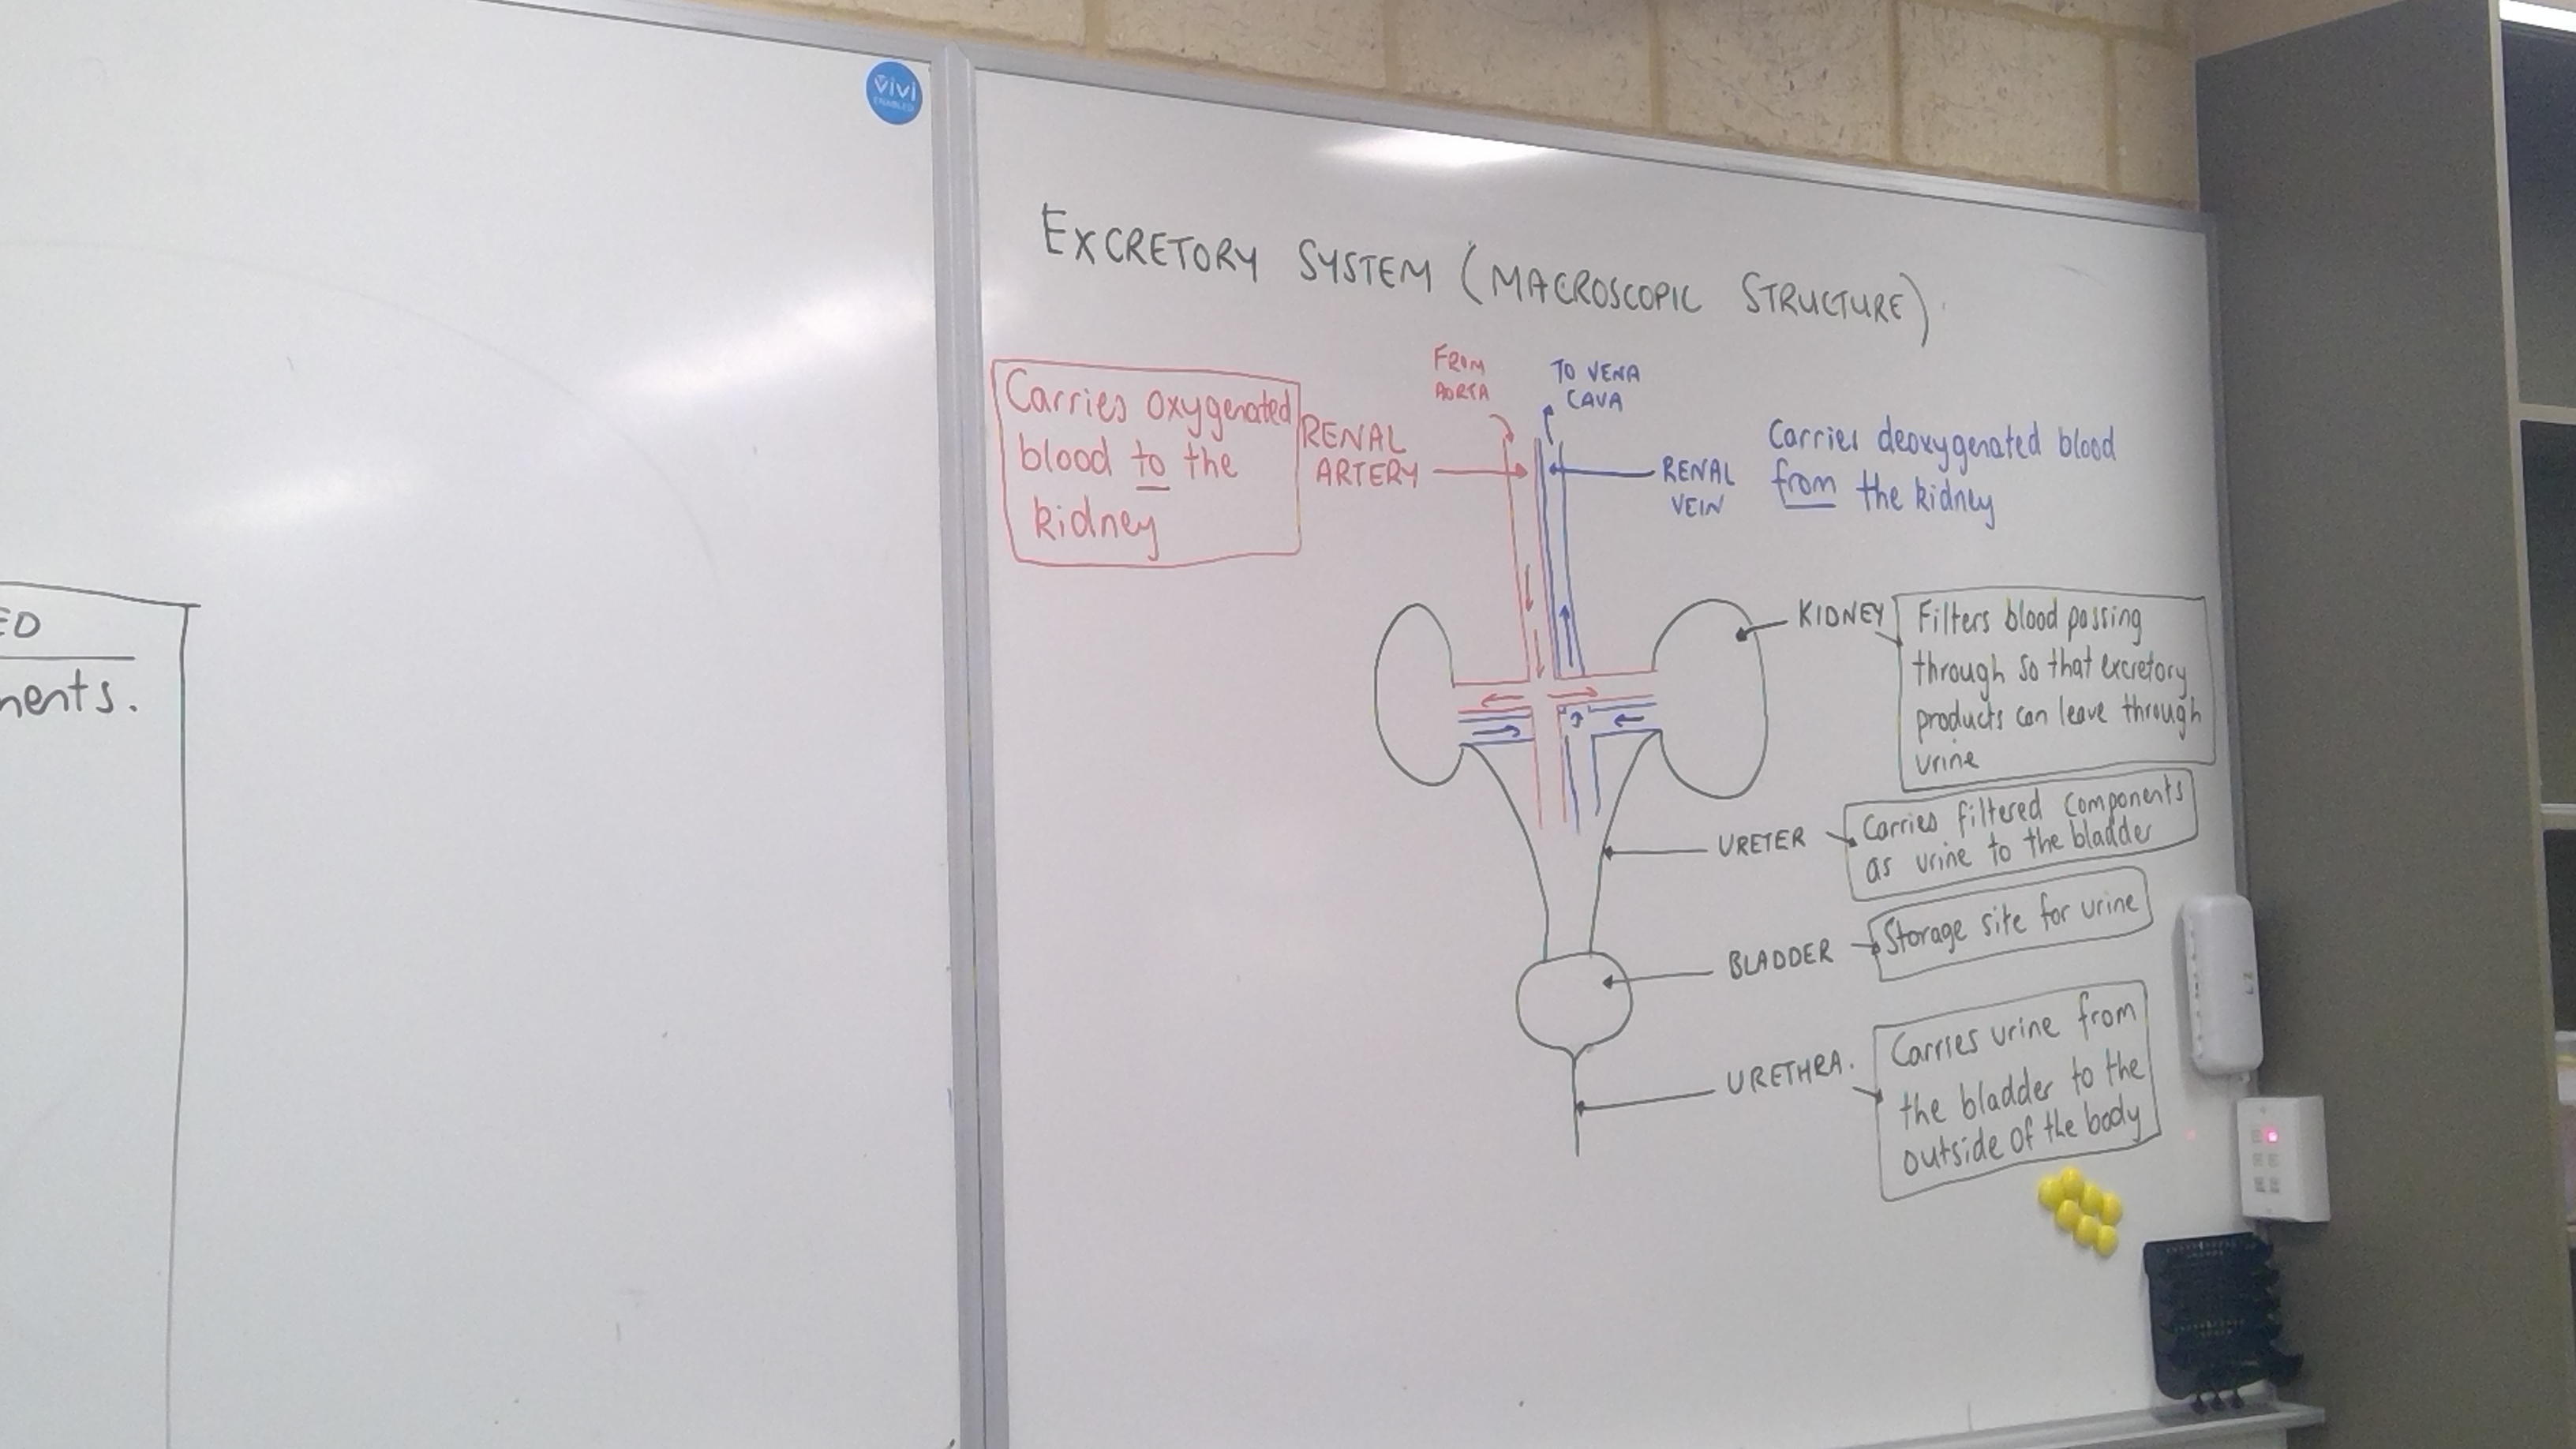 vivi
ENABLED
ED
ments.
EXCRETORY SYSTEM (MACROSCOPIC STRUCTURE)
Carries oxygenated
blood to the
kidney
RENAL
ARTERY
FROM
AORTA
TO VENA
CAVA
RENAL
VEIN
Carries deoxygenated blood
from the kidney
KIDNEY
Filters blood passing
through so that excretory
products can leave through
urine
URETER
Carries filtered components
as urine to the bladder
BLADDER
Storage site for urine
URETHRA.
Carries urine from
the bladder to the
outside of the body